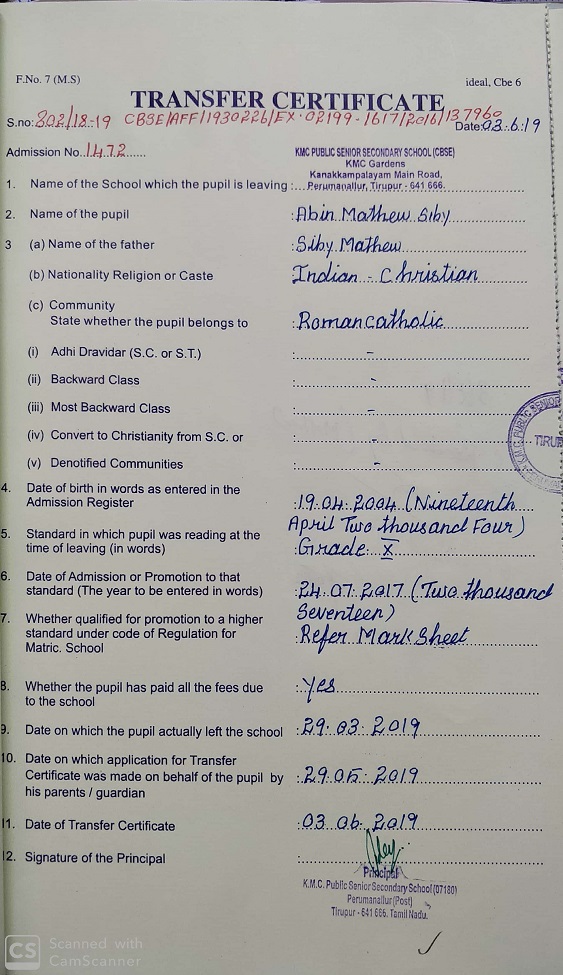 F.No. 7 (M.S)
ideal, Cbe 6
TRANSFER CERTIFICATE
S.no: 802/18-19 CBSE/AFF/1930226/EX-02199-1617/2016/137960
Date: 03.6.19
Admission No. 1472
KMC PUBLIC SENIOR SECONDARY SCHOOL (CBSE)
KMC Gardens
Kanakkampalayam Main Road,
1. Name of the School which the pupil is leaving : Perumanallur, Tirupur - 641 666.
2. Name of the pupil : Abin Mathew Siby
3 (a) Name of the father : Siby Mathew
(b) Nationality Religion or Caste : Indian - Christian
(c) Community
State whether the pupil belongs to : Roman catholic
(i) Adhi Dravidar (S.C. or S.T.) : -
(ii) Backward Class : -
(iii) Most Backward Class : -
(iv) Convert to Christianity from S.C. or : -
(v) Denotified Communities : -
4. Date of birth in words as entered in the
Admission Register : 19.04.2004 (Nineteenth
April Two thousand Four)
5. Standard in which pupil was reading at the
time of leaving (in words) : Grade X
6. Date of Admission or Promotion to that
standard (The year to be entered in words) : 24.07.2017 (Two thousand
Seventeen)
7. Whether qualified for promotion to a higher
standard under code of Regulation for : Refer Mark Sheet
Matric. School
8. Whether the pupil has paid all the fees due : Yes
to the school
9. Date on which the pupil actually left the school : 29.03.2019
10. Date on which application for Transfer
Certificate was made on behalf of the pupil by : 29.05.2019
his parents / guardian
11. Date of Transfer Certificate : 03.06.2019
12. Signature of the Principal :
Principal
K.M.C. Public Senior Secondary School (07180)
Perumanallur (Post)
Tirupur - 641 666. Tamil Nadu.
K.M.C. PUBLIC SENIOR
TIRU
CS Scanned with
CamScanner